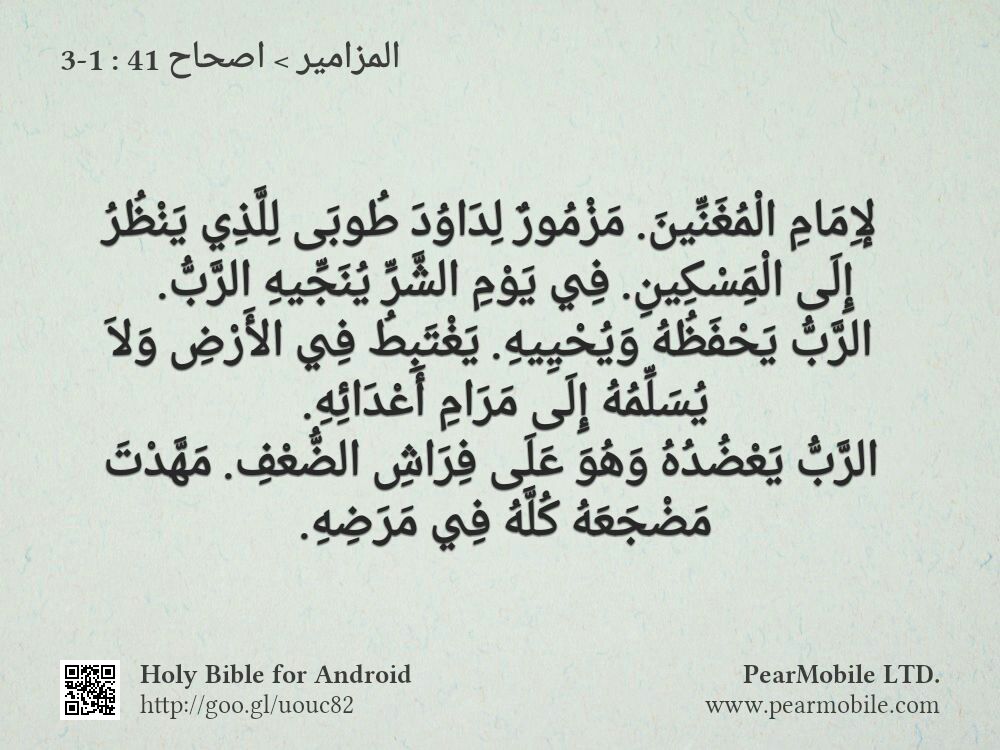 المزامير > اصحاح 41 : 1-3
لإِمَامِ الْمُغَنِّينَ. مَزْمُورٌ لِدَاوُدَ طُوبَى لِلَّذِي يَنْظُرُ
إِلَى الْمَِسْكِينِ. فِي يَوْمِ الشَّرِّ يُنَجِّيهِ الرَّبُّ.
الرَّبُّ يَحْفَظُهُ وَيُحْيِيهِ. يَغْتَبِطُ فِي الأَرْضِ وَلاَ
يُسَلِّمُهُ إِلَى مَرَامِ أَعْدَائِهِ.
الرَّبُّ يَعْضُدُهُ وَهُوَ عَلَى فِرَاشِ الضُّعْفِ. مَهَّدْتَ
مَضْجَعَهُ كُلَّهُ فِي مَرَضِهِ.
Holy Bible for Android
http://goo.gl/uouc82
PearMobile LTD.
www.pearmobile.com